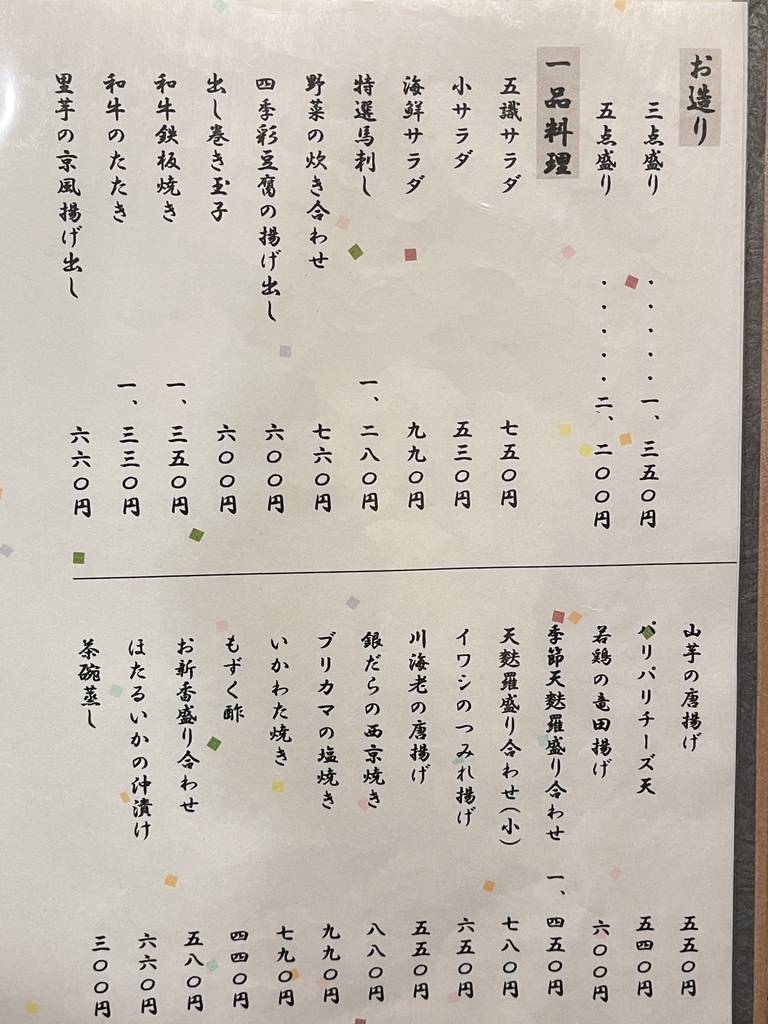 お造り
三点盛り ・・・・・一、三五〇円
五点盛り ・・・・・二、二〇〇円
一品料理
五識サラダ 七五〇円
小サラダ 五三〇円
海鮮サラダ 九九〇円
特選馬刺し 一、二八〇円
野菜の炊き合わせ 七六〇円
四季彩豆腐の揚げ出し 六〇〇円
出し巻き玉子 六〇〇円
和牛鉄板焼き 一、三五〇円
和牛のたたき 一、三三〇円
里芋の京風揚げ出し 六六〇円
山芋の唐揚げ 五五〇円
パリパリチーズ天 五四〇円
若鶏の竜田揚げ 六〇〇円
季節天麩羅盛り合わせ 一、四五〇円
天麩羅盛り合わせ(小) 七八〇円
イワシのつみれ揚げ 六五〇円
川海老の唐揚げ 五五〇円
銀だらの西京焼き 八八〇円
ブリカマの塩焼き 九九〇円
いかわた焼き 七九〇円
もずく酢 四四〇円
お新香盛り合わせ 五八〇円
ほたるいかの沖漬け 六六〇円
茶碗蒸し 三〇〇円